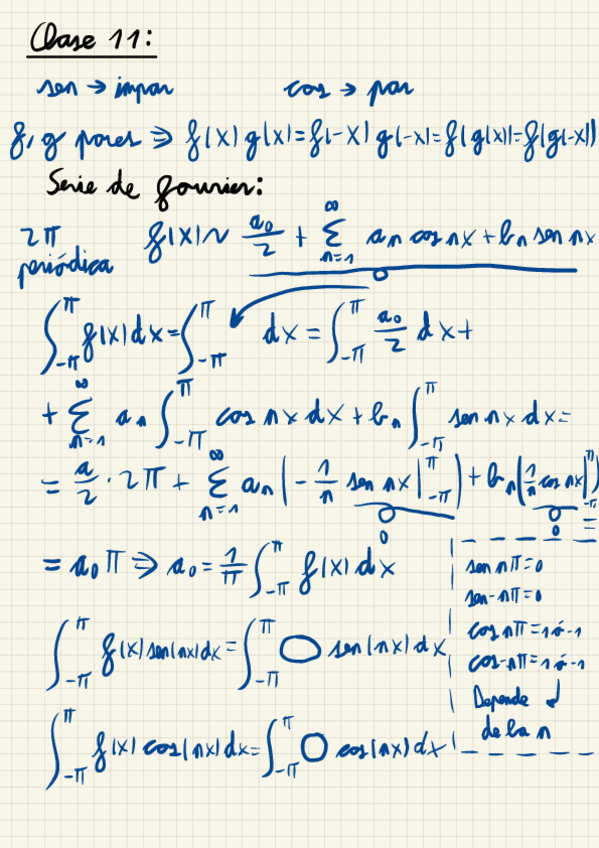 Clase 11:
sen → impar cos → par
f, g pares ⇒ f(x) g(x) = f(-x) g(-x) = f(g(x)) = f(g(-x))
Serie de fourier:
2π periódica f(x) ~ a₀/2 + ∑_{n=1}^{∞} aₙ cos nx + bₙ sen nx
∫_{-π}^{π} f(x) dx = ∫_{-π}^{π} dx = ∫_{-π}^{π} a₀/2 dx +
+ ∑_{n=1}^{∞} aₙ ∫_{-π}^{π} cos nx dx + bₙ ∫_{-π}^{π} sen nx dx =
= a/2 · 2π + ∑_{n=1}^{∞} aₙ (-1/n sen nx |_{-π}^{π}) + bₙ (1/n cos nx |_{-π}^{π}) =
0 0
= a₀ π ⇒ a₀ = 1/π ∫_{-π}^{π} f(x) dx
sen nπ = 0
sen -nπ = 0
cos nπ = 1 ó -1
cos -nπ = 1 ó -1
Depende
de la n
∫_{-π}^{π} f(x) sen(nx) dx = ∫_{-π}^{π} ○ sen(nx) dx
∫_{-π}^{π} f(x) cos(nx) dx = ∫_{-π}^{π} ○ cos(nx) dx